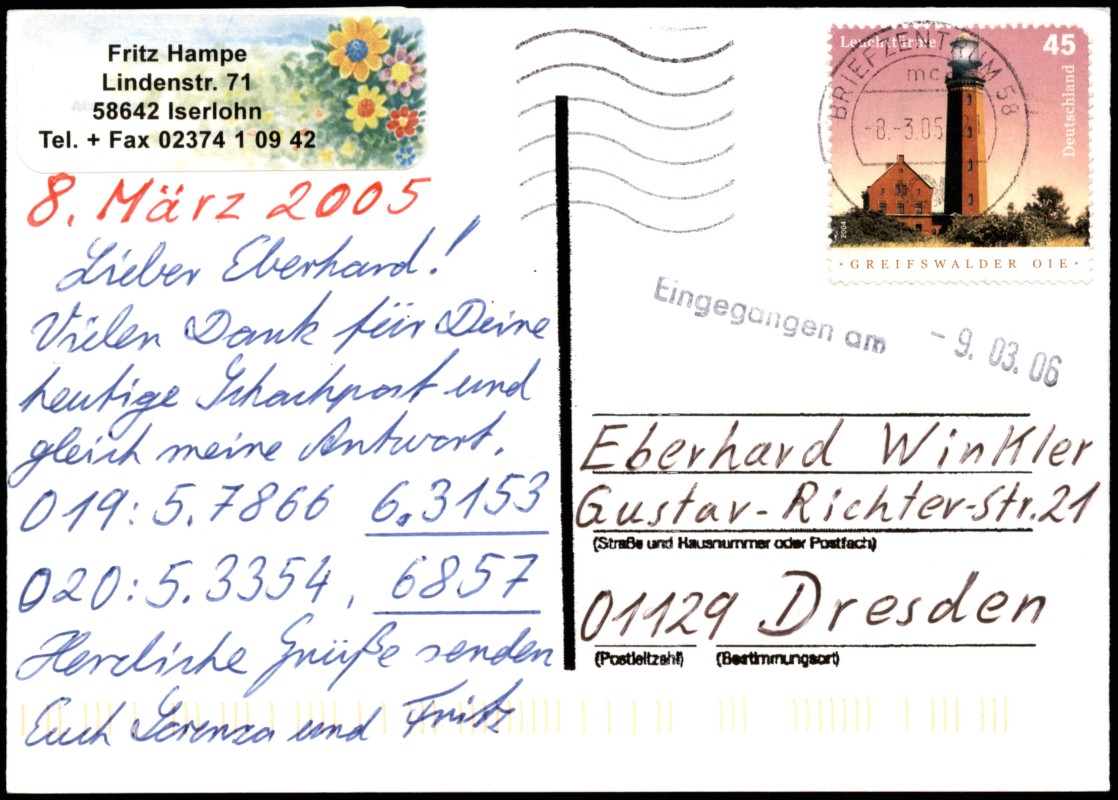 Fritz Hampe
Lindenstr. 71
58642 Iserlohn
Tel. + Fax 02374 1 09 42
8. März 2005
Lieber Eberhard!
Vielen Dank für Deine
heutige Schachpost und
gleich meine Antwort.
019: 5.7866 6.3153
020: 5.3354, 6857
Herzliche Grüße senden
Euch Lorenza und Fritz
Leuchttürme
45
Deutschland
2004
· GREIFSWALDER OIE ·
BRIEFZENTRUM 58
mc
-8.-3.05
Eingegangen am - 9. 03. 06
Eberhard Winkler
Gustav-Richter-Str. 21
(Straße und Hausnummer oder Postfach)
01129 Dresden
(Postleitzahl) (Bestimmungsort)